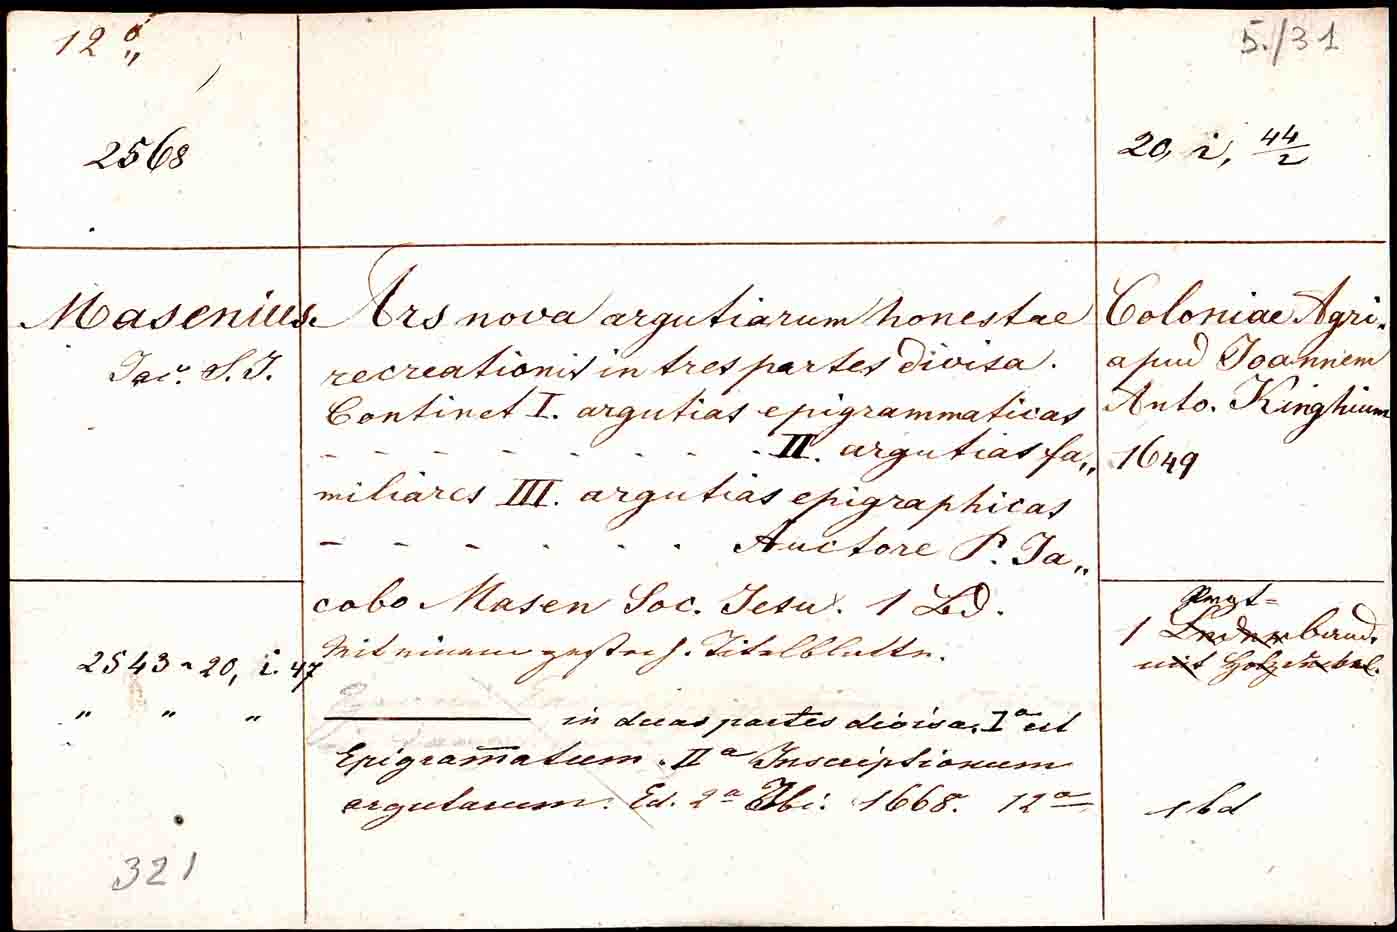 12°
"
5./31
2568
20, i, 44/2
Masenius
Jac. S. J.
Ars nova argutiarum honestae
recreationis in tres partes divisa.
Continet I. argutias epigrammaticas
- - - - - - - - - II. argutias fa„
miliares III. argutias epigraphicas
- - - - - - - Auctore P. Ja„
cobo Masen Soc. Jesu. 1 Bd.
Mit einem gestoch. Titelblatte.
Coloniae Agri.
apud Joannem
Anto. Kinghium
1649
2543 - 20, i. 47
" " "
——— in duas partes divisa. Iª est
Epigram̅atum. IIª Inscriptionum
argutarum. Ed. 2ª Ibi. 1668. 12º
1 Lederband.
mit
1 bd
321